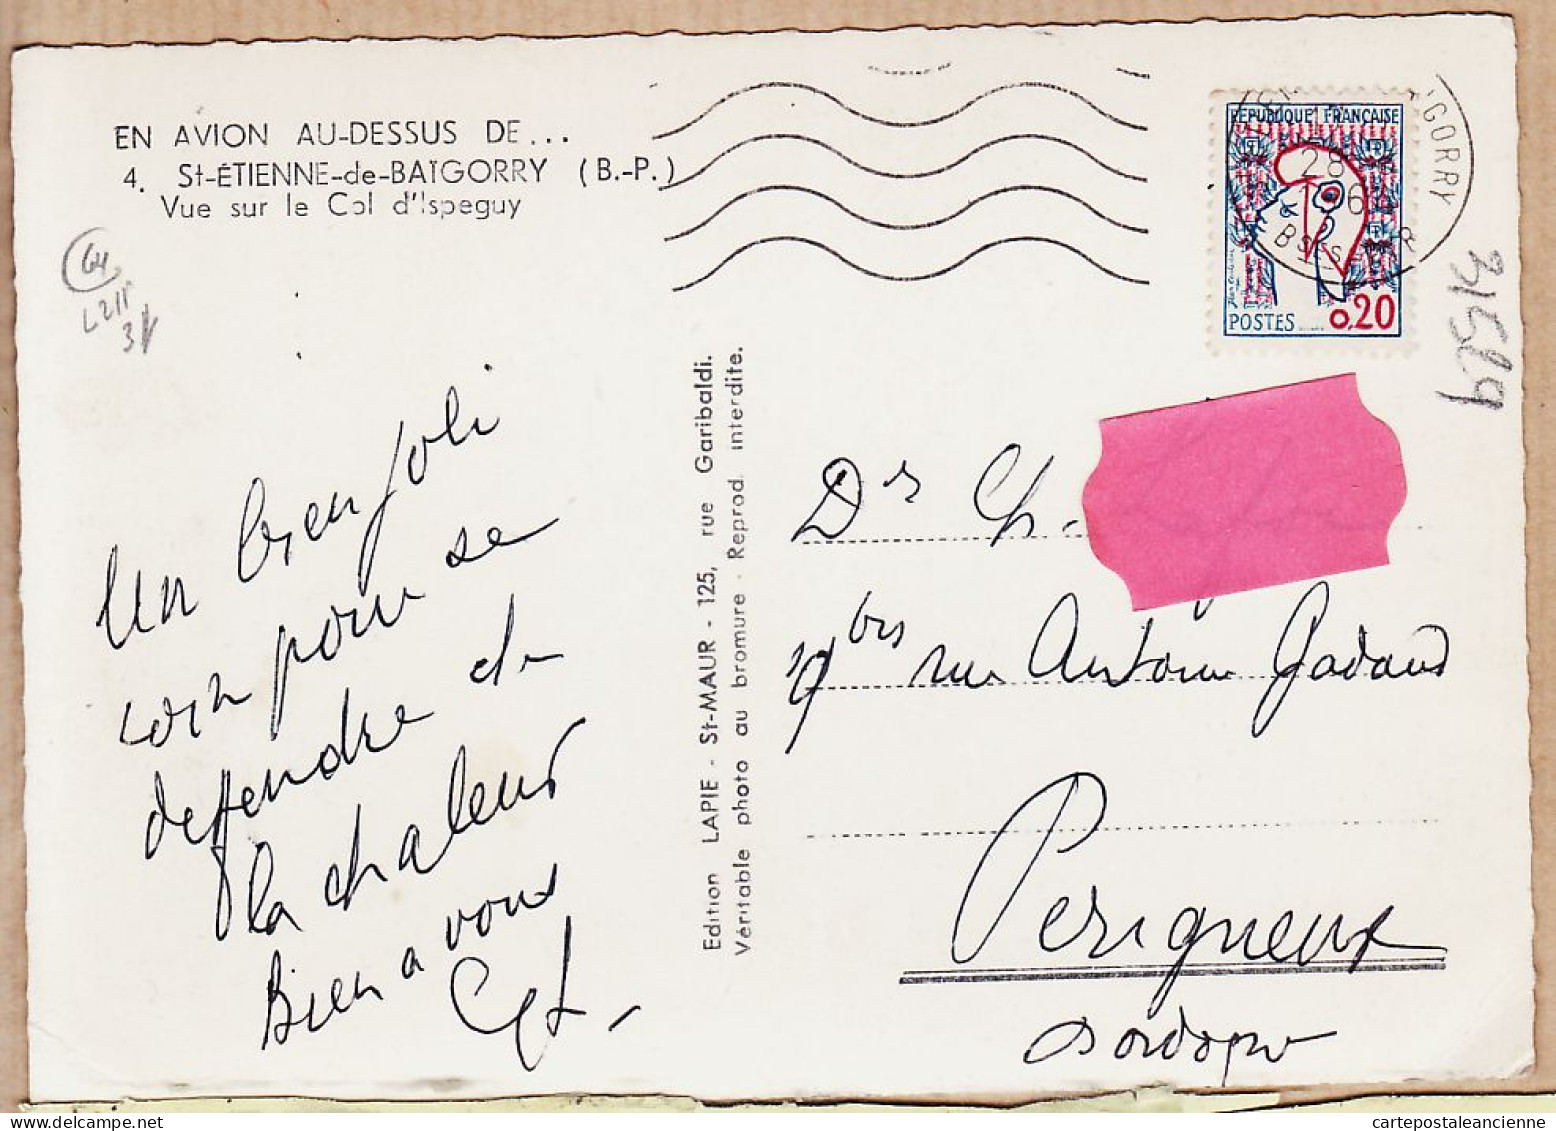 EN AVION AU-DESSUS DE...
4. St-ÉTIENNE-de-BAÏGORRY (B.-P.)
Vue sur le Col d'Ispeguy
64
L211
Un bien joli
coin pour se
deffendre de
la chaleur
Bien a vous
Edition LAPIE - St-MAUR - 125, rue Garibaldi.
Véritable photo au bromure - Reprod. interdite.
RÉPUBLIQUE FRANÇAISE
POSTES 0,20
28
1964
BSES-PYR
GORRY
31589
Dr Ch.
bis rue Antoine Gadaud
Perigueux
Dordogne
cartepostaleancienne